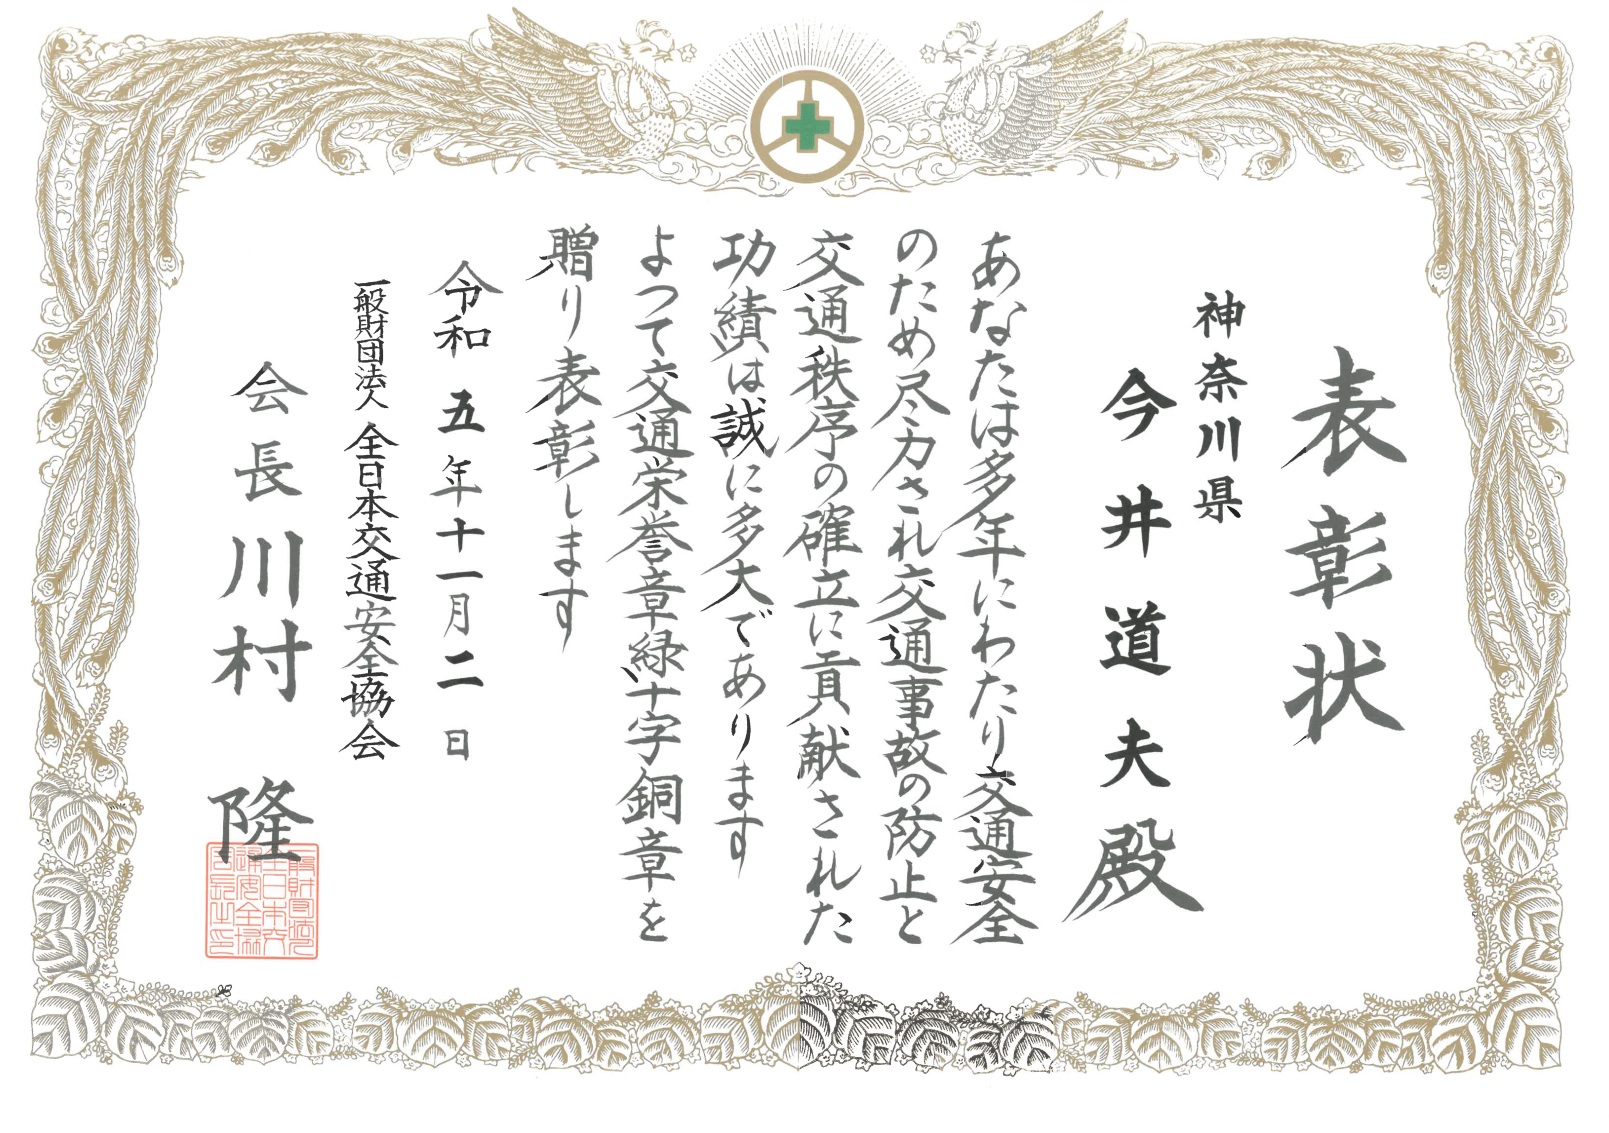 表彰状
神奈川県
今井道夫殿
あなたは多年にわたり交通安全
のため尽力され交通事故の防止と
交通秩序の確立に貢献された
功績は誠に多大であります
よつて交通栄誉章緑十字銅章を
贈り表彰します
令和五年十一月二日
一般財団法人全日本交通安全協会
会長川村隆
一般財団法人
全日本交
通安全協
会長之印